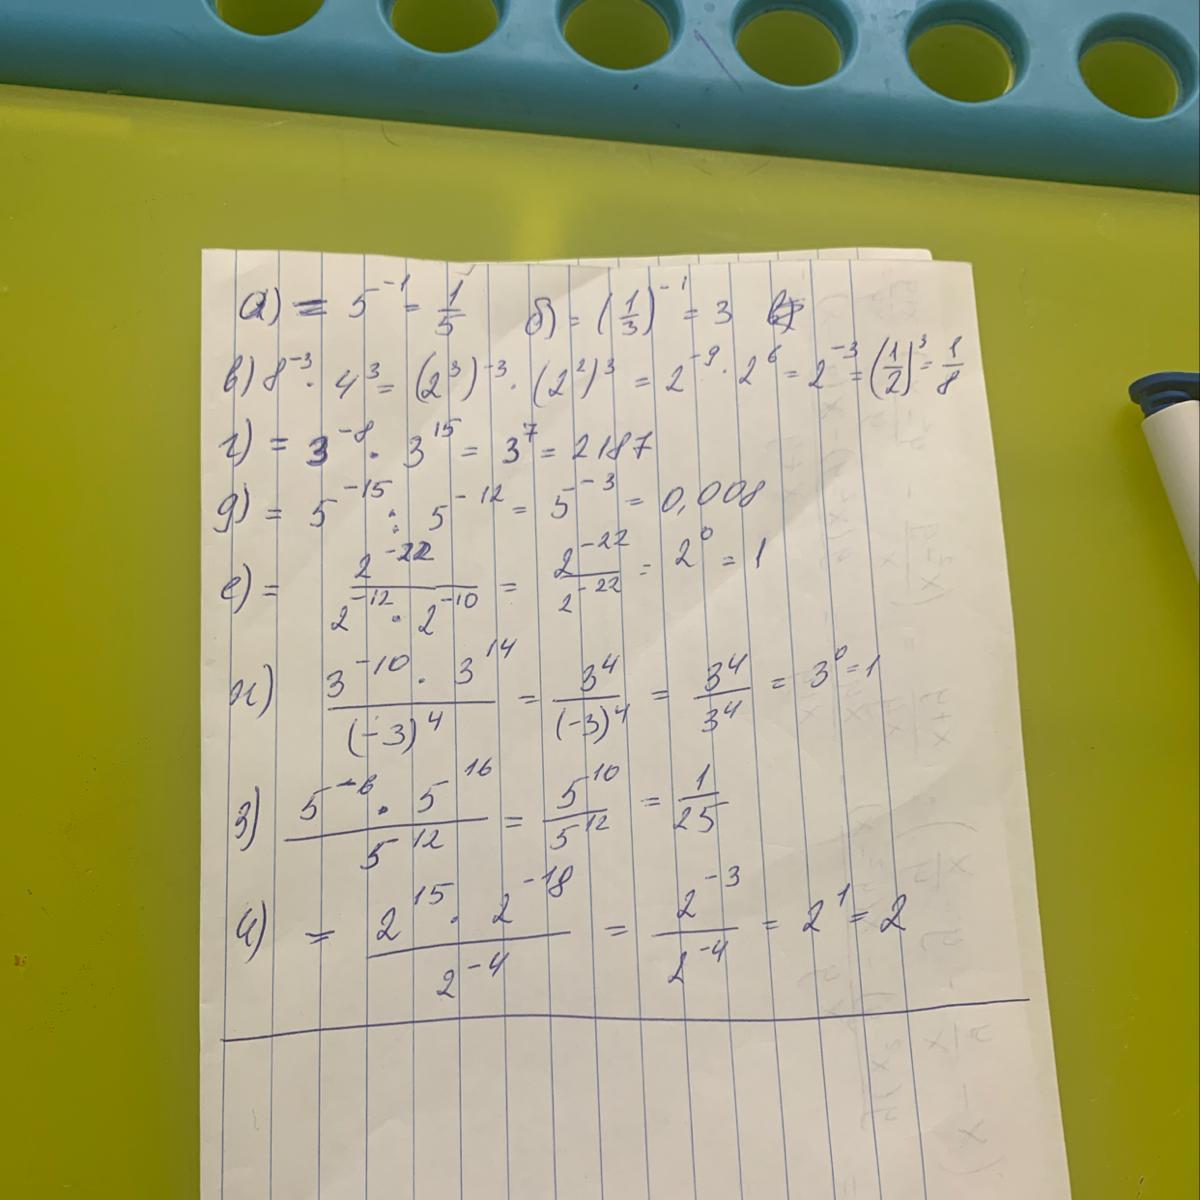 а) = 5⁻¹ = 1/5 б) = (1/3)⁻¹ = 3
в) 8⁻³ · 4³ = (2³)⁻³ · (2²)³ = 2⁻⁹ · 2⁶ = 2⁻³ = (1/2)³ = 1/8
г) = 3⁻⁸ · 3¹⁵ = 3⁷ = 2187
д) = 5⁻¹⁵ : 5⁻¹² = 5⁻³ = 0,008
е) = 2⁻²²/(2⁻¹² · 2⁻¹⁰) = 2⁻²²/2⁻²² = 2⁰ = 1
ж) (3⁻¹⁰ · 3¹⁴)/(-3)⁴ = 3⁴/(-3)⁴ = 3⁴/3⁴ = 3⁰ = 1
з) (5⁻⁶ · 5¹⁶)/5¹² = 5¹⁰/5¹² = 1/25
и) = (2¹⁵ · 2⁻¹⁸)/2⁻⁴ = 2⁻³/2⁻⁴ = 2¹ = 2